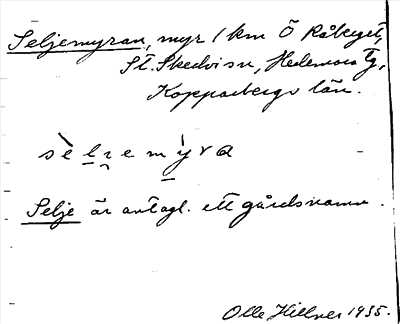 Seljemyran, myr 1 km Ö Råkyet,
St. Skedvi sn, Hedemora Tg,
Kopparbergs län.
sè l̲ ɿ e m ỳ r a
Selje är antagl. ett gårdsnamn.
Olle Hillner 1935.